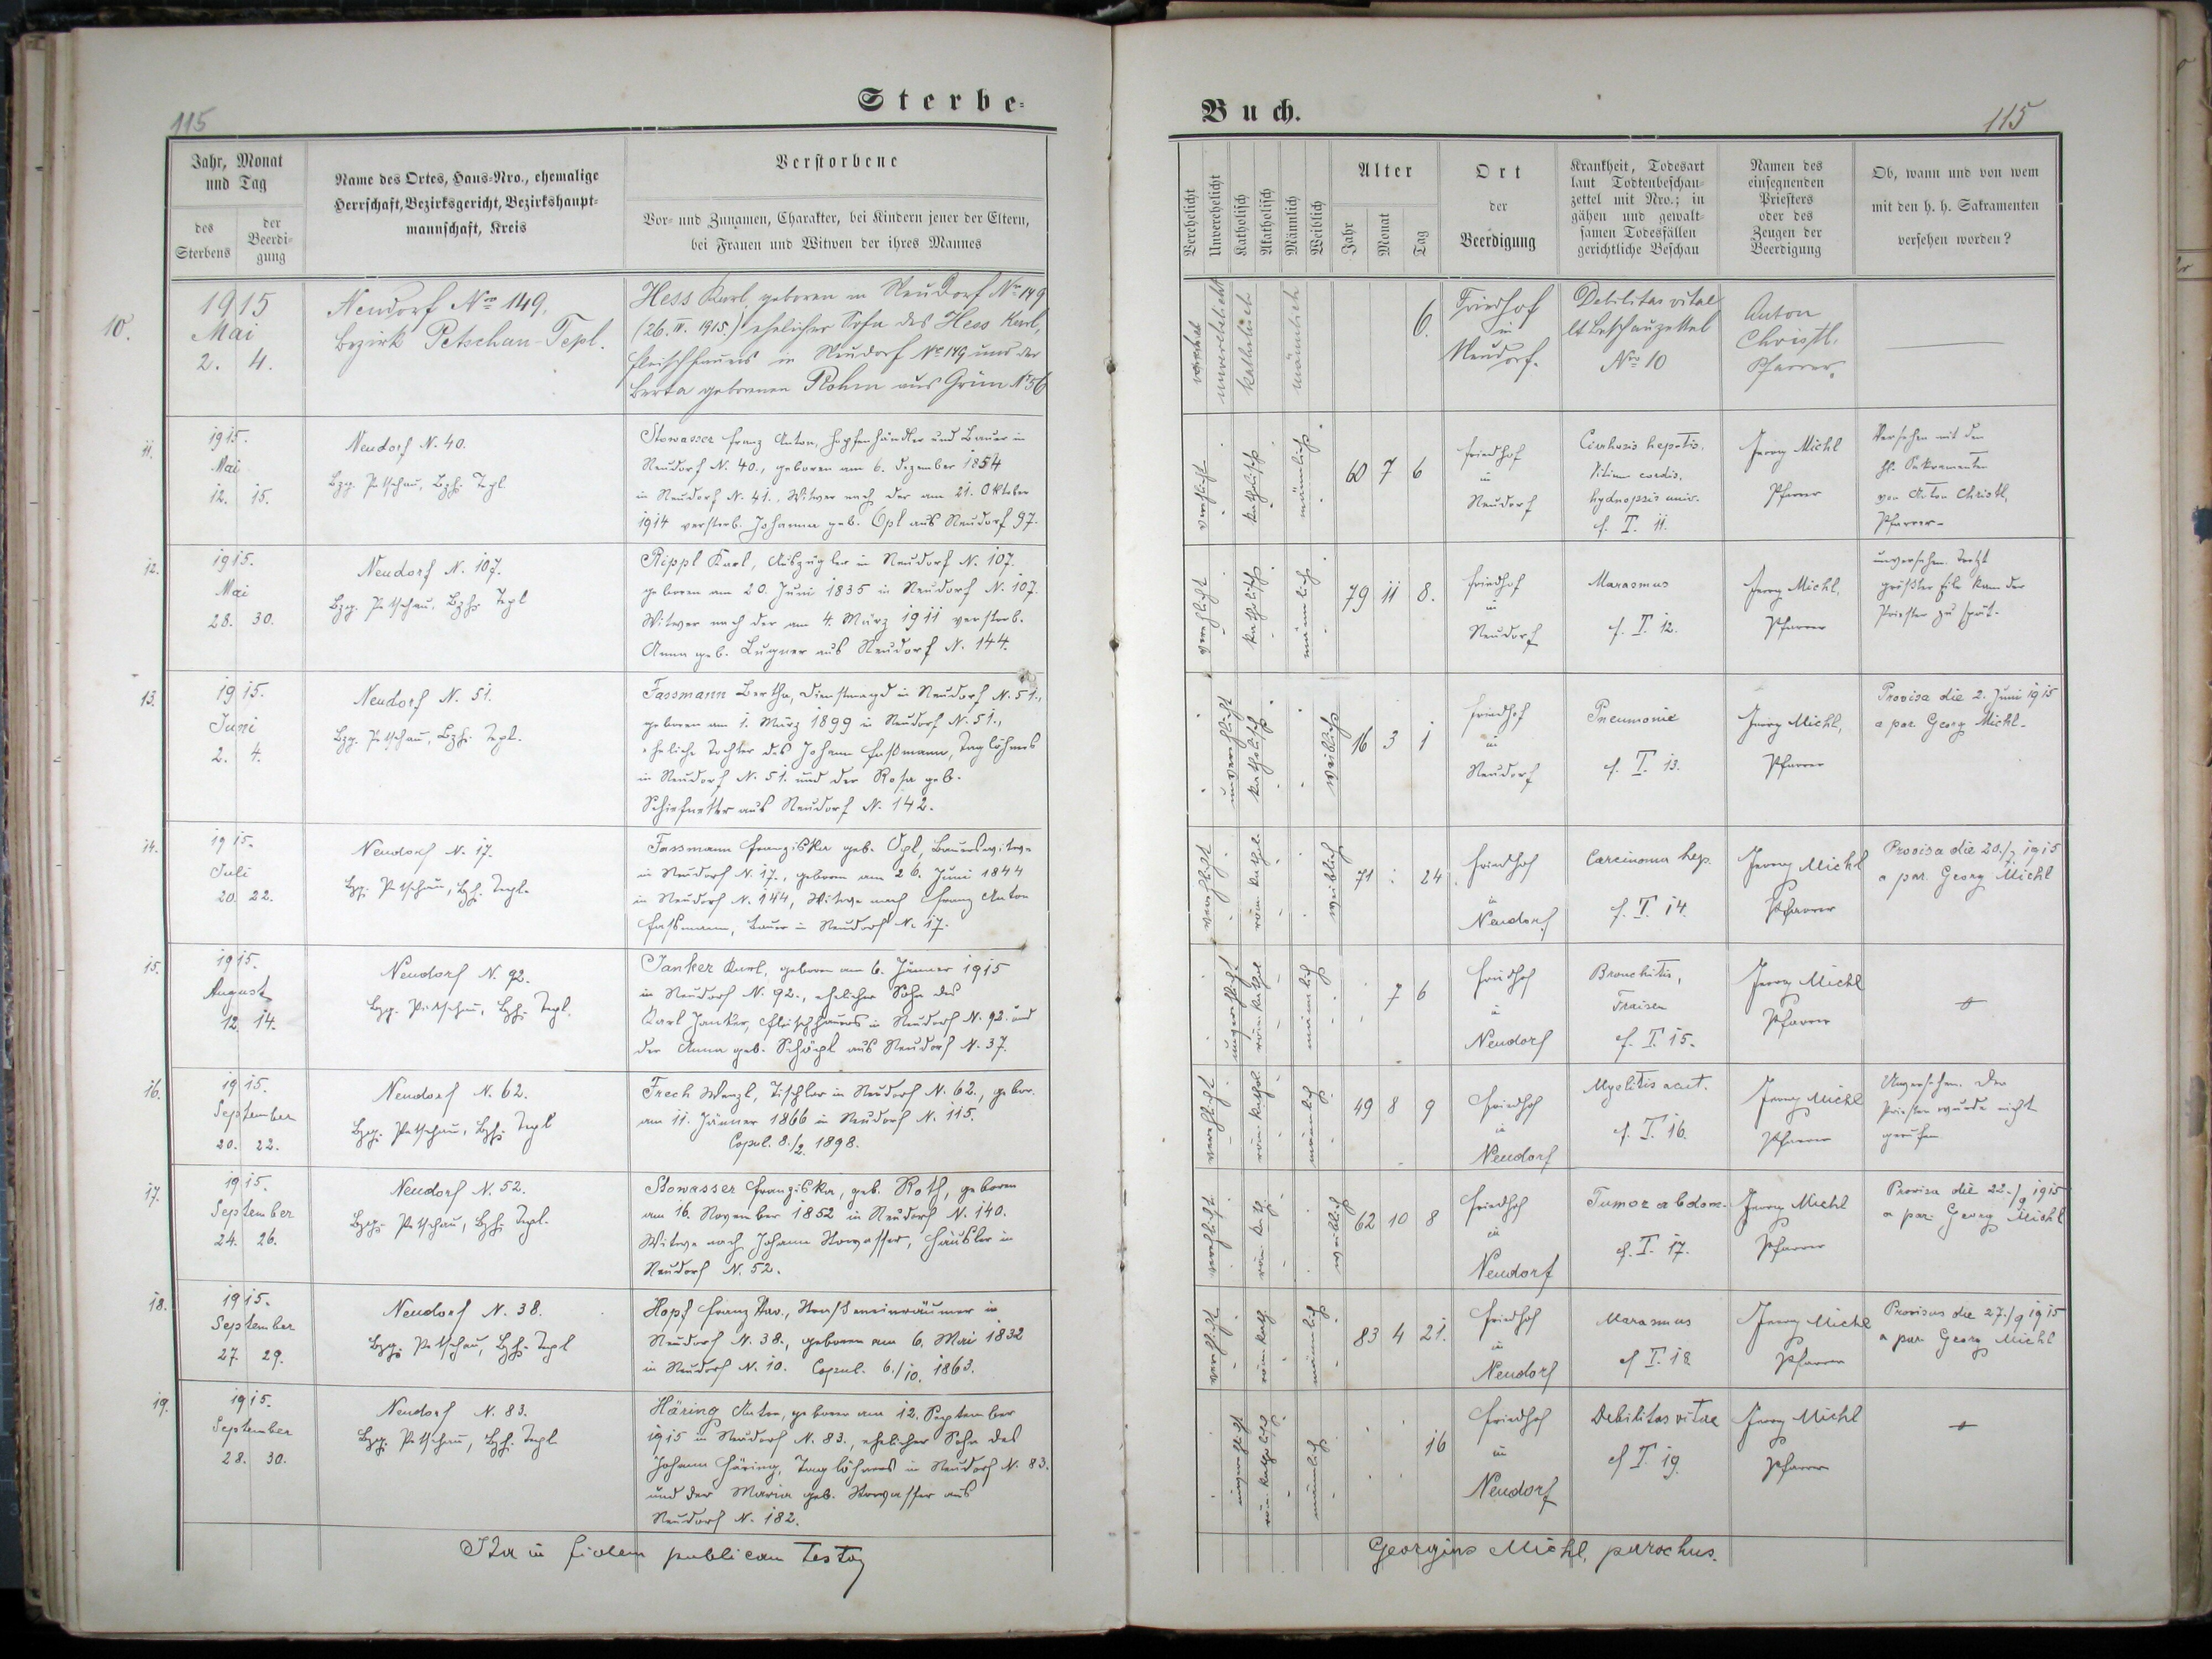 Sterbe-
115
Jahr, Monat
und Tag
des
Sterbens
der
Beerdi-
gung
Name des Ortes, Haus-Nro., ehemalige
Herrschaft, Bezirksgericht, Bezirkshaupt-
mannschaft, Kreis
Verstorbene
Vor- und Zunamen, Charakter, bei Kindern jener der Eltern,
bei Frauen und Witwen der ihres Mannes
10.
1915
Mai
2. 4.
Neudorf Nro 149.
Bezirk Petschau-Tepl.
Hess Karl, geboren in Neudorf Nro 149
(26. IV. 1915.) ehelicher Sohn des Hess Karl,
Fleischhauers in Neudorf Nro 149 und der
Berta geborenen Rohm aus Grün No 56
11.
1915.
Mai
12. 15.
Neudorf N. 40.
Bzg. Petschau, Bzh. Tepl
Stowasser Franz Anton, Hopfenhändler und Bauer in
Neudorf N. 40., geboren am 6. Dezember 1854
in Neudorf N. 41., Witwer nach der am 21. Oktober
1914 verstorb. Johanna geb. Opl aus Neudorf 97.
12.
1915.
Mai
28. 30.
Neudorf N. 107.
Bzg. Petschau, Bzh. Tepl
Rippl Karl, Auszügler in Neudorf N. 107.
geboren am 20. Juni 1835 in Neudorf N. 107.
Witwer nach der am 4. März 1911 verstorb.
Anna geb. Lugner aus Neudorf N. 144.
13.
1915.
Juni
2. 4.
Neudorf N. 51.
Bzg. Petschau, Bzh. Tepl.
Fassmann Bertha, Dienstmagd in Neudorf N. 51.,
geboren am 1. März 1899 in Neudorf N. 51.,
eheliche Tochter des Johann Faßmann, Taglöhners
in Neudorf N. 51. und der Rosa geb.
aus Neudorf N. 142.
14.
1915.
Juli
20. 22.
Neudorf N. 17.
Bzg. Petschau, Bzh. Tepl.
Fassmann Franziska geb. Opl, Bauerswitwe
in Neudorf N. 17., geboren am 26. Juni 1844
in Neudorf N. 144, Witwe nach Franz Anton
Faßmann, Bauer in Neudorf N. 17.
15.
1915.
August
12. 14.
Neudorf N. 92.
Bzg. Petschau, Bzh. Tepl.
Janker Karl, geboren am 6. Jänner 1915
in Neudorf N. 92., ehelicher Sohn des
Karl Janker, Fleischhauers in Neudorf N. 92. und
der Anna geb. Schöpl aus Neudorf N. 37.
16.
1915.
September
20. 22.
Neudorf N. 62.
Bzg. Petschau, Bzh. Tepl
Frech Wenzl, Tischler in Neudorf N. 62., gebor.
am 11. Jänner 1866 in Neudorf N. 115.
Copul. 8./2. 1898.
17.
1915.
September
24. 26.
Neudorf N. 52.
Bzg. Petschau, Bzh. Tepl.
Stowasser Franziska, geb. Roth, geboren
am 16. November 1852 in Neudorf N. 140.
Witwe nach Johann Stowasser, Häusler in
Neudorf N. 52.
18.
1915.
September
27. 29.
Neudorf N. 38.
Bzg. Petschau, Bzh. Tepl
Hopf Franz Xav., Straßeneinräumer in
Neudorf N. 38., geboren am 6. Mai 1832
in Neudorf N. 10. Copul. 6./10. 1863.
19.
1915.
September
28. 30.
Neudorf N. 83.
Bzg. Petschau, Bzh. Tepl
Häring Anton, geboren am 12. September
1915 in Neudorf N. 83., ehelicher Sohn des
Johann Häring, Taglöhners in Neudorf N. 83.
und der Maria geb. Stowasser aus
Neudorf N. 182.
Ita in fidem publicam testor
Buch.
115
Verehelicht
Unverehelicht
Katholisch
Akatholisch
Männlich
Weiblich
Alter
Jahr
Monat
Tag
Ort
der
Beerdigung
Krankheit, Todesart
laut Todtenbeschau-
zettel mit Nro.; in
gähen und gewalt-
samen Todesfällen
gerichtliche Beschau
Namen des
einsegnenden
Priesters
oder des
Zeugen der
Beerdigung
Ob, wann und von wem
mit den h. h. Sakramenten
versehen worden?
unverehelicht
katholisch
männlich
6.
Friedhof
in
Neudorf.
Debilitas vital
lt Beschauzettel
Nro 10
Anton
Christl.
Pfarrer.
verehlicht
katholisch
männlich
60 7 6
Friedhof
in
Neudorf
Cirrhosis hepatis.
Vitium cordis.
univ.
f. T. 11.
Georg Michl
Pfarrer
Versehen mit den
hl. Sakramenten
von Anton Christl,
Pfarrer.
verehlicht
katholisch
männlich
79 11 8.
Friedhof
in
Neudorf
Marasmus
f. T. 12.
Georg Michl,
Pfarrer
unversehen. Trotz
größter Eile kam der
Priester zu spät.
unverehlicht
katholisch
weiblich
16 3 1
Friedhof
in
Neudorf
Pneumonie
f. T. 13.
Georg Michl,
Pfarrer
Provisa die 2. Juni 1915
a par. Georg Michl.
verehlicht
röm. kathol.
weiblich
71 : 24
Friedhof
in
Neudorf
Carcinoma hep.
f. T. 14.
Georg Michl
Pfarrer
Provisa die 20./7 1915
a par. Georg Michl
unverehlicht
röm. kathol
männlich
7 6
Friedhof
in
Neudorf
Bronchitis,
Fraisen
f. T. 15.
Georg Michl
Pfarrer
verehlicht
röm. kathol
männlich
49 8 9
Friedhof
in
Neudorf
Myelitis acut.
f. T. 16.
Georg Michl
Pfarrer
Unversehen. Der
Priester wurde nicht
gerufen.
verehlicht
röm. kath.
weiblich
62 10 8
Friedhof
in
Neudorf
Tumor abdom.
f. T. 17.
Georg Michl
Pfarrer
Provisa die 22./9 1915
a par. Georg Michl
verehlicht
röm. kath.
männlich
83 4 21.
Friedhof
in
Neudorf
Marasmus
f T. 18
Georg Michl
Pfarrer
Provisus die 27./9 1915
a par. Georg Michl
unverehlicht
röm. katholisch
männlich
16
Friedhof
in
Neudorf
Debilitas vitae
f T. 19.
Georg Michl
Pfarrer
Georgius Michl, parochus.